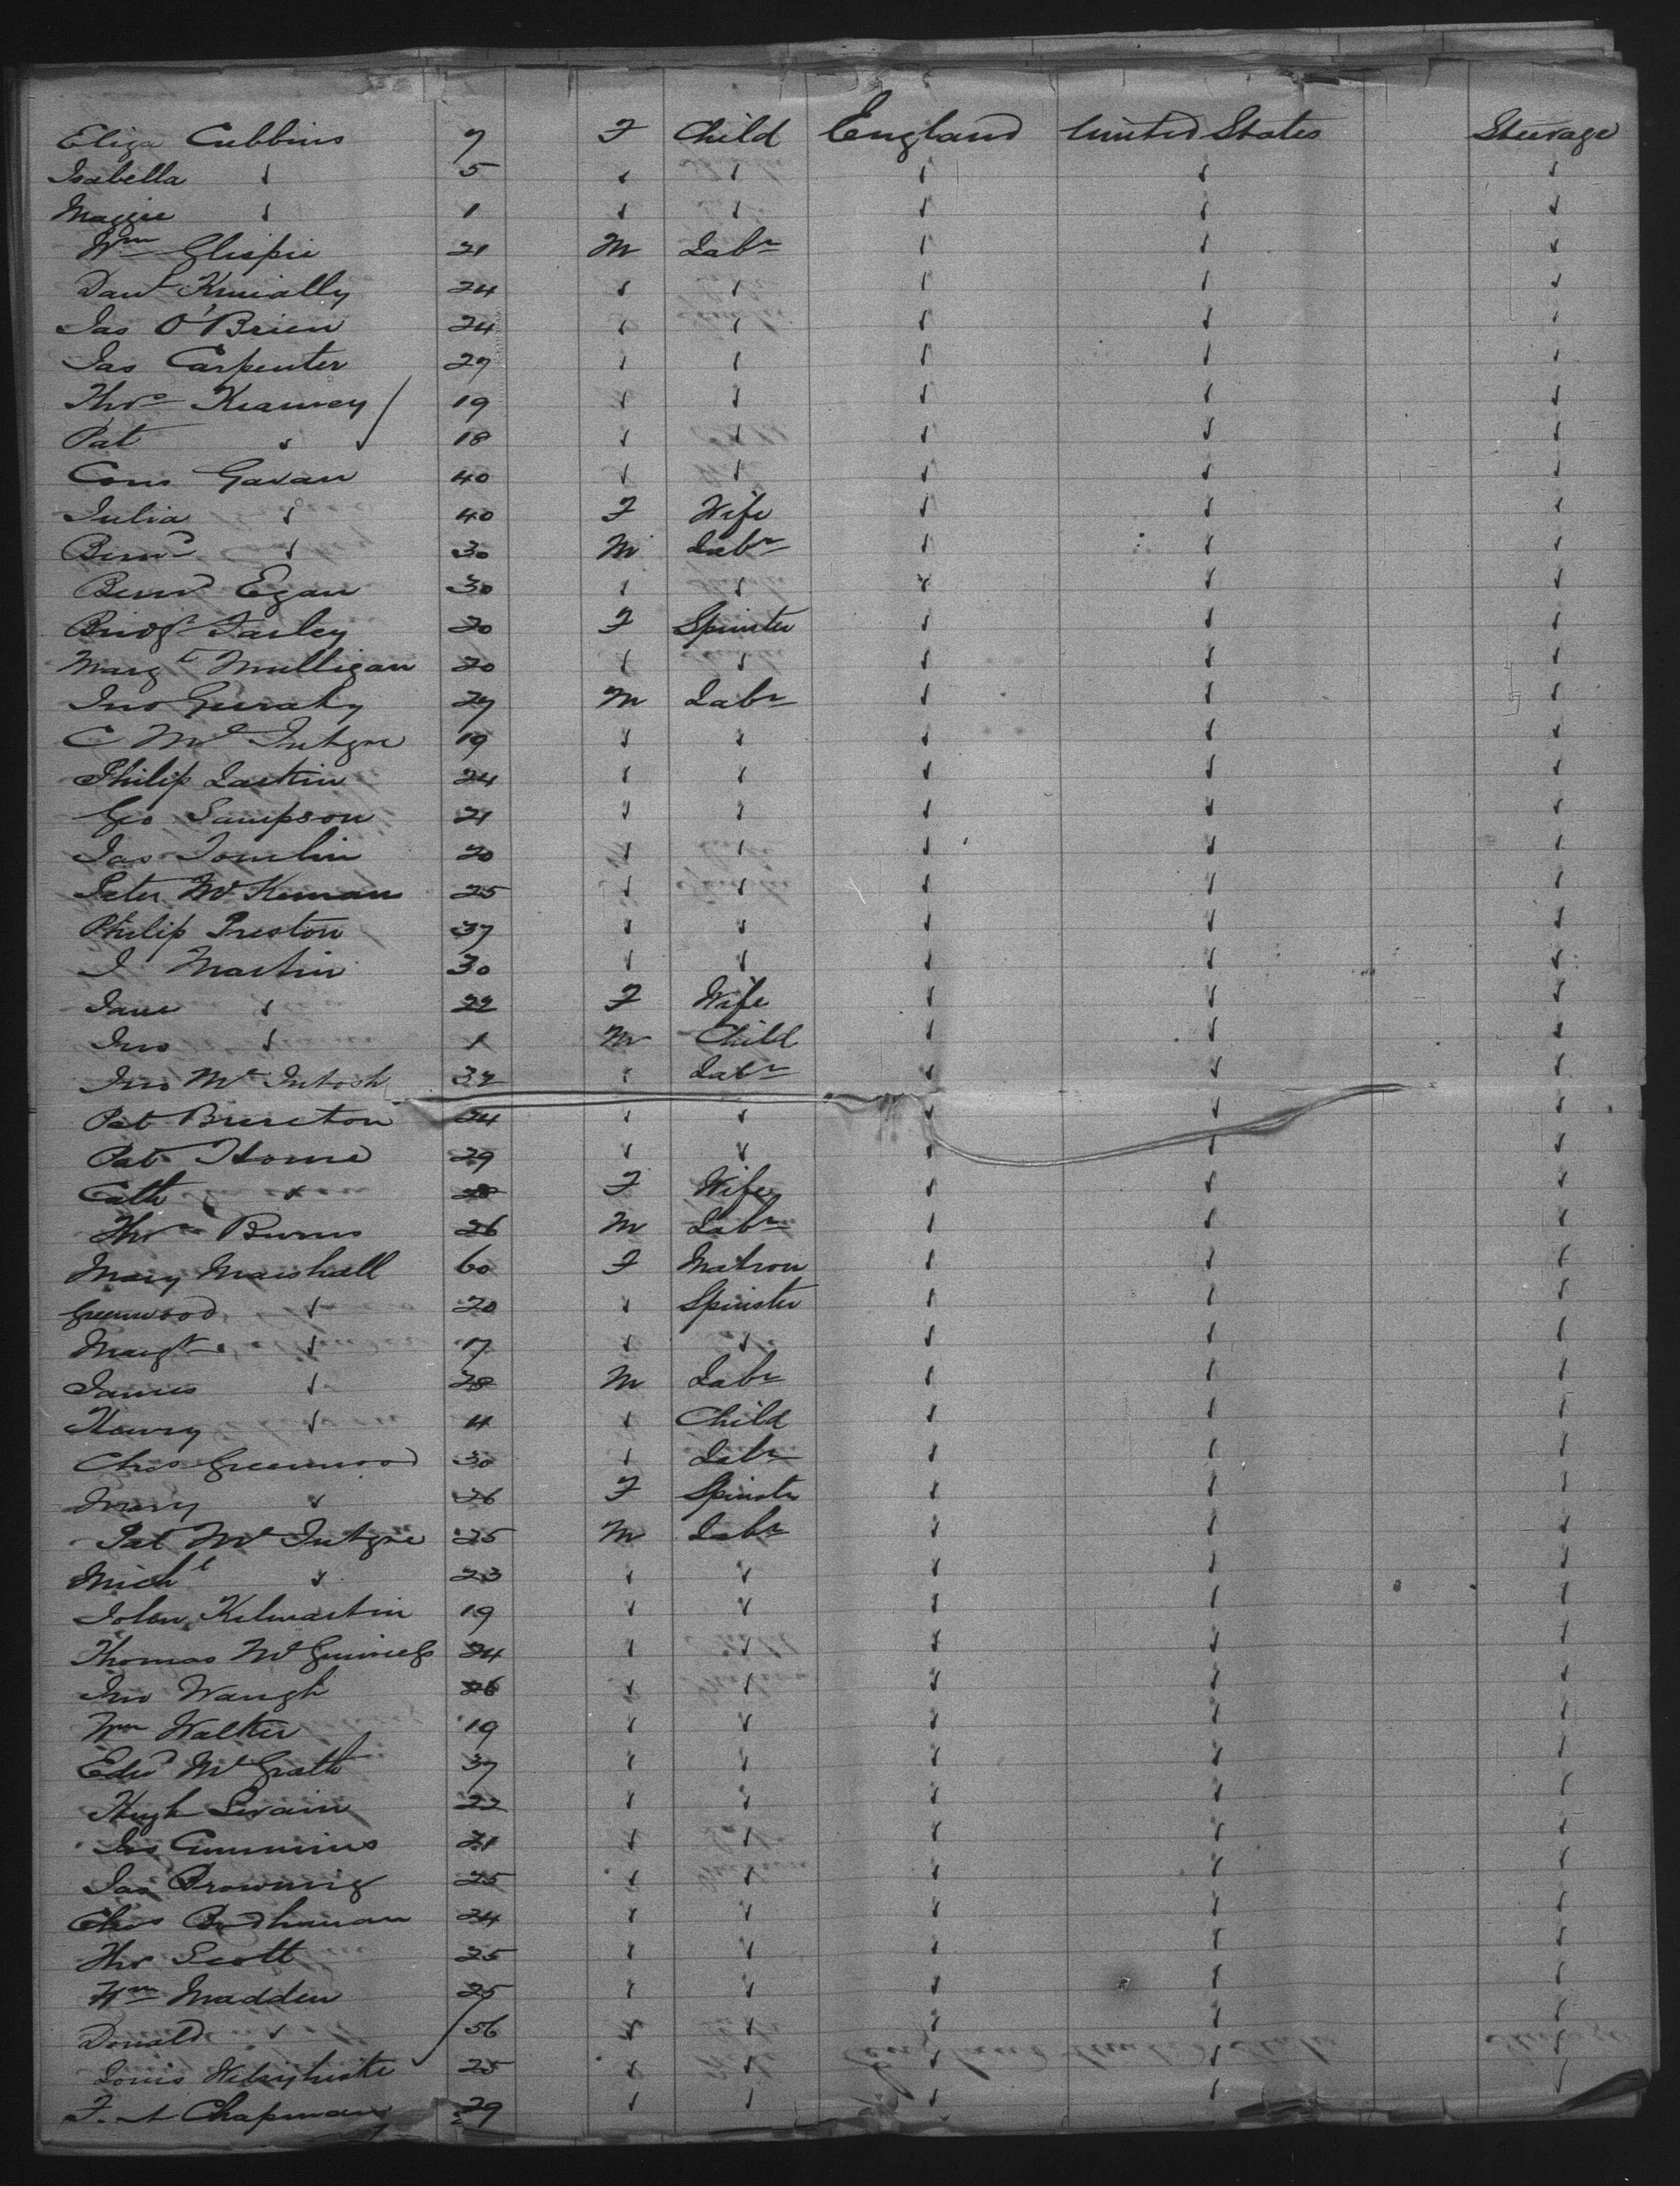 Eliza Cubbins 7 F Child England United States Steerage
Isabella ✓ 5 ✓ ✓ ✓ ✓ ✓
Maggie ✓ 1 ✓ ✓ ✓ ✓ ✓
Wm Glispie 21 M Labr ✓ ✓ ✓
Danl 24 ✓ ✓ ✓ ✓ ✓
Jas O'Brien 24 ✓ ✓ ✓ ✓ ✓
Jas Carpenter 27 ✓ ✓ ✓ ✓ ✓
Thos Kearney 19 ✓ ✓ ✓ ✓ ✓
Pat ✓ 18 ✓ ✓ ✓ ✓ ✓
Corns Gavan 40 ✓ ✓ ✓ ✓ ✓
Julia ✓ 40 F Wife ✓ ✓ ✓
Bernd ✓ 30 M Labr ✓ ✓ ✓
Bernd Egan 30 ✓ ✓ ✓ ✓ ✓
Bridgt Farley 20 F Spinster ✓ ✓ ✓
Margt Mulligan 20 ✓ ✓ ✓ ✓ ✓
Jno Geraty 27 M Labr ✓ ✓ ✓
C McIntyre 19 ✓ ✓ ✓ ✓ ✓
Philip Larkin 24 ✓ ✓ ✓ ✓ ✓
Geo Sampson 21 ✓ ✓ ✓ ✓ ✓
Jas Tomlin 20 ✓ ✓ ✓ ✓ ✓
Peter McKernan 25 ✓ ✓ ✓ ✓ ✓
Philip Preston 37 ✓ ✓ ✓ ✓ ✓
J Martin 30 ✓ ✓ ✓ ✓ ✓
Jane ✓ 22 F Wife ✓ ✓ ✓
Jno ✓ 1 M Child ✓ ✓ ✓
Jno McIntosh 32 ✓ Labr ✓ ✓ ✓
Pat Brereton 24 ✓ ✓ ✓ ✓ ✓
Pat Horne 29 ✓ ✓ ✓ ✓ ✓
Cath ✓ 28 F Wife ✓ ✓ ✓
Thos Burns 26 M Labr ✓ ✓ ✓
Mary Marshall 60 F Matron ✓ ✓ ✓
Greenwood ✓ 20 ✓ Spinster ✓ ✓ ✓
Margt ✓ 17 ✓ ✓ ✓ ✓ ✓
James ✓ 28 M Labr ✓ ✓ ✓
Henry ✓ 4 ✓ Child ✓ ✓ ✓
Chas Greenwood 30 ✓ Labr ✓ ✓ ✓
Mary ✓ 26 F Spinster ✓ ✓ ✓
Pat McIntyre 25 M Labr ✓ ✓ ✓
Michl ✓ 23 ✓ ✓ ✓ ✓ ✓
John Kilmartin 19 ✓ ✓ ✓ ✓ ✓
Thomas 24 ✓ ✓ ✓ ✓ ✓
Jno Waugh 26 ✓ ✓ ✓ ✓ ✓
Wm Walter 19 ✓ ✓ ✓ ✓ ✓
Edwd McGrath 37 ✓ ✓ ✓ ✓ ✓
Hugh Swain 22 ✓ ✓ ✓ ✓ ✓
Jas Cummins 21 ✓ ✓ ✓ ✓ ✓
Jas Browning 25 ✓ ✓ ✓ ✓ ✓
Chas 24 ✓ ✓ ✓ ✓ ✓
Thos Scott 25 ✓ ✓ ✓ ✓ ✓
Wm Madden 25 ✓ ✓ ✓ ✓ ✓
Donald ✓ 56 ✓ ✓ ✓ ✓ ✓
Louis 25 ✓ ✓ ✓ ✓ ✓
F. A Chapman 29 ✓ ✓ ✓ ✓